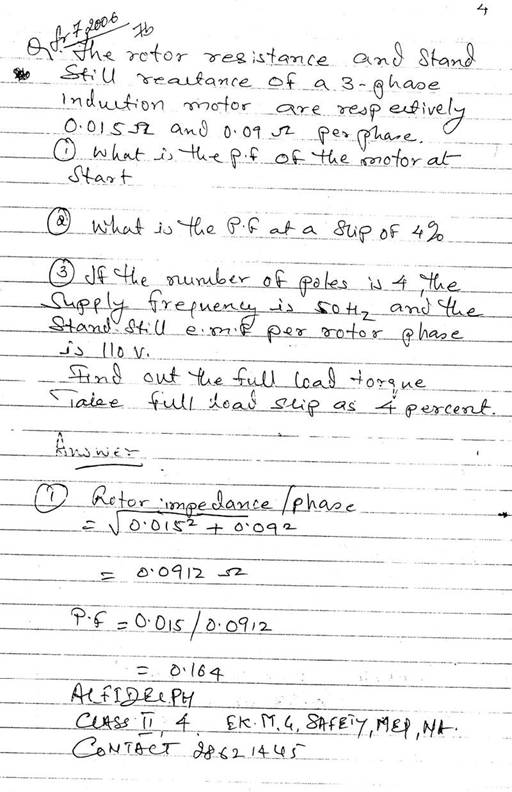 4
Jr 7,2006 7b
Q. The rotor resistance and Stand
Still reactance of a 3-phase
induction motor are respectively
0.015 Ω and 0.09 Ω per phase.
① What is the p.f of the motor at
Start
② What is the P.F at a Slip of 4%
③ If the number of poles is 4, the
Supply frequency is 50 Hz and the
Stand-Still e.m.f per rotor phase
is 110 v.
Find out the full load torque
Take full load slip as 4 percent.
Answer
① Rotor impedance/phase
= √0.015² + 0.092
= 0.0912 Ω
P.f = 0.015/0.0912
= 0.164
CLASS II, 4 EK.M.G, SAFETY, MEP, NA.
CONTACT 28621445